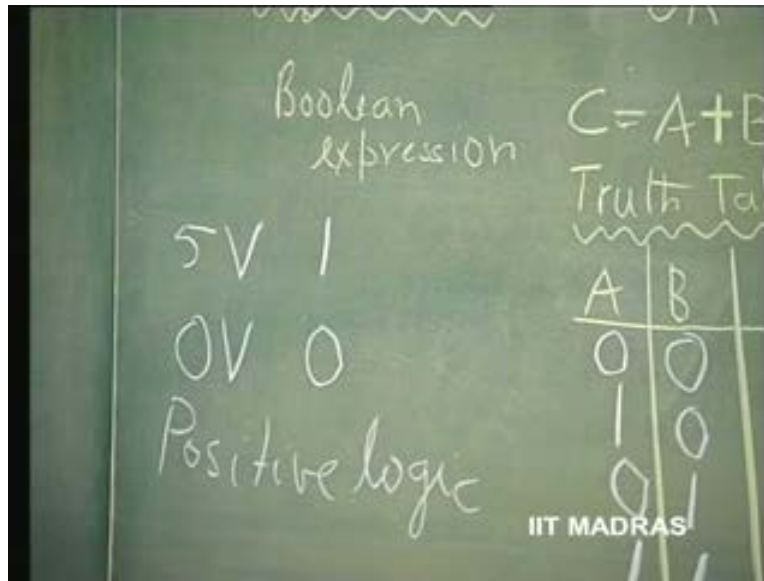 OR
Boolean
expression
5V 1
0V 0
Positive logic
C=A+B
Truth Ta
A B
0 0
1 0
0 1
1 1
IIT MADRAS